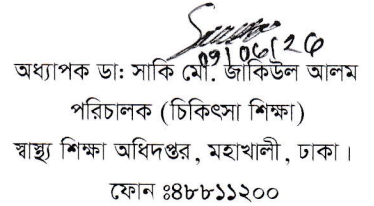 09/06/26
অধ্যাপক ডা: সাকি মো. জাকিউল আলম
পরিচালক (চিকিৎসা শিক্ষা)
স্বাস্থ্য শিক্ষা অধিদপ্তর, মহাখালী, ঢাকা।
ফোন ঃ৪৮৮১১২০০